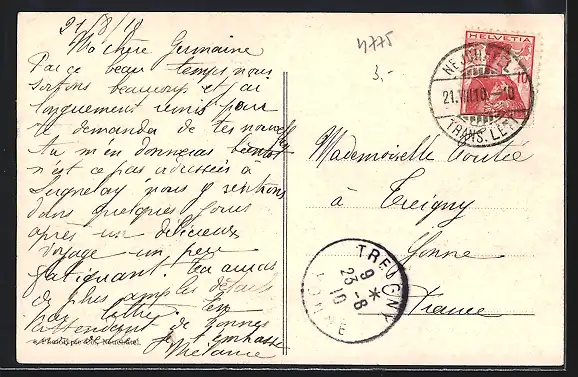 21/8/10
Ma chère Germaine
Par ce beau temps nous
sortons beaucoup et j'ai
longuement remis pour
te demander de tes nouvelles
tu m'en donneras bientôt
n'est ce pas adressées à
Seignelay nous y rentrons
dans quelques jours
après un délicieux
voyage un peu
fatiguant. tu auras
de plus amples détails
par lettre. En
attendant de bonnes
je t'embrasse
Mélanie
4775
3.-
HELVETIA
10
NEUCHATEL
21.VIII.10.-10
TRANS. LET.
Mademoiselle
à Treigny
Yonne
France
TREIGNY
9 *
23-8
10
YONNE